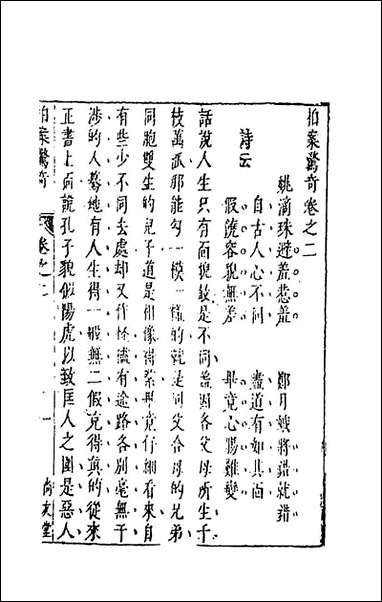 拍案驚奇卷之二
姚滴珠避羞惹羞　鄭月娥將錯就錯
詩云
自古人心不同　盡道有如其面
假饒容貌無差　畢竟心腸難變
話說人生只有面貌最是不同葢因各父母所生千
枝萬派那能勾一模一樣的就是同父合母的兄弟
同胞雙生的兒子道是相像得緊畢竟仔細看來自
有些少不同去處却又作怪儘有途路各別毫無干
涉的人驀地有人生得一般無二假充得眞的從來
正書上面說孔子貌似陽虎以致匡人之圍是惡人
拍案驚奇　卷之二　一　尚友堂